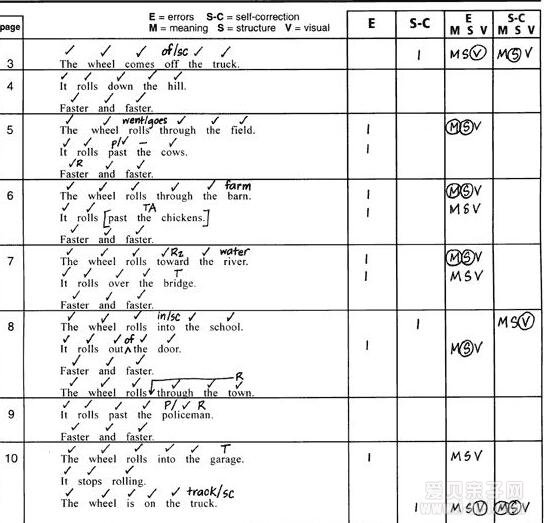 E = errors S-C = self-correction
M = meaning S = structure V = visual
page E S-C E M S V S-C M S V
✓ ✓ ✓ of/sc ✓ ✓
3 The wheel comes off the truck. 1 M S V M S V
✓ ✓ ✓ ✓ ✓
4 It rolls down the hill.
✓ ✓ ✓
Faster and faster.
✓ ✓ went/goes ✓ ✓ ✓
5 The wheel rolls through the field. 1 M S V
✓ ✓ P/✓ – ✓
It rolls past the cows. 1
✓R ✓ ✓
Faster and faster.
✓ ✓ ✓ ✓ ✓ farm
6 The wheel rolls through the barn. 1 M S V
✓ ✓ TA
It rolls [past the chickens.] 1 M S V
✓ ✓ ✓
Faster and faster.
✓ ✓ ✓ ✓R2 ✓ water
7 The wheel rolls toward the river. 1 M S V
✓ ✓ ✓ ✓ T
It rolls over the bridge. 1 M S V
✓ ✓ ✓
Faster and faster.
✓ ✓ ✓ in/sc ✓ ✓
8 The wheel rolls into the school. 1 M S V
✓ ✓ ✓ of ✓ ✓
It rolls out ^ the door. 1 M S V
✓ ✓ ✓
Faster and faster.
✓ ✓ ✓ ✓ ✓ ✓ R
The wheel rolls through the town.
✓ ✓ ✓ ✓ P/✓ R
9 It rolls past the policeman.
✓ ✓ ✓
Faster and faster.
✓ ✓ ✓ ✓ ✓ T
10 The wheel rolls into the garage. 1 M S V
✓ ✓ ✓
It stops rolling.
✓ ✓ ✓ ✓ ✓ track/sc
The wheel is on the truck. 1 M S V M S V
爱贝亲子网